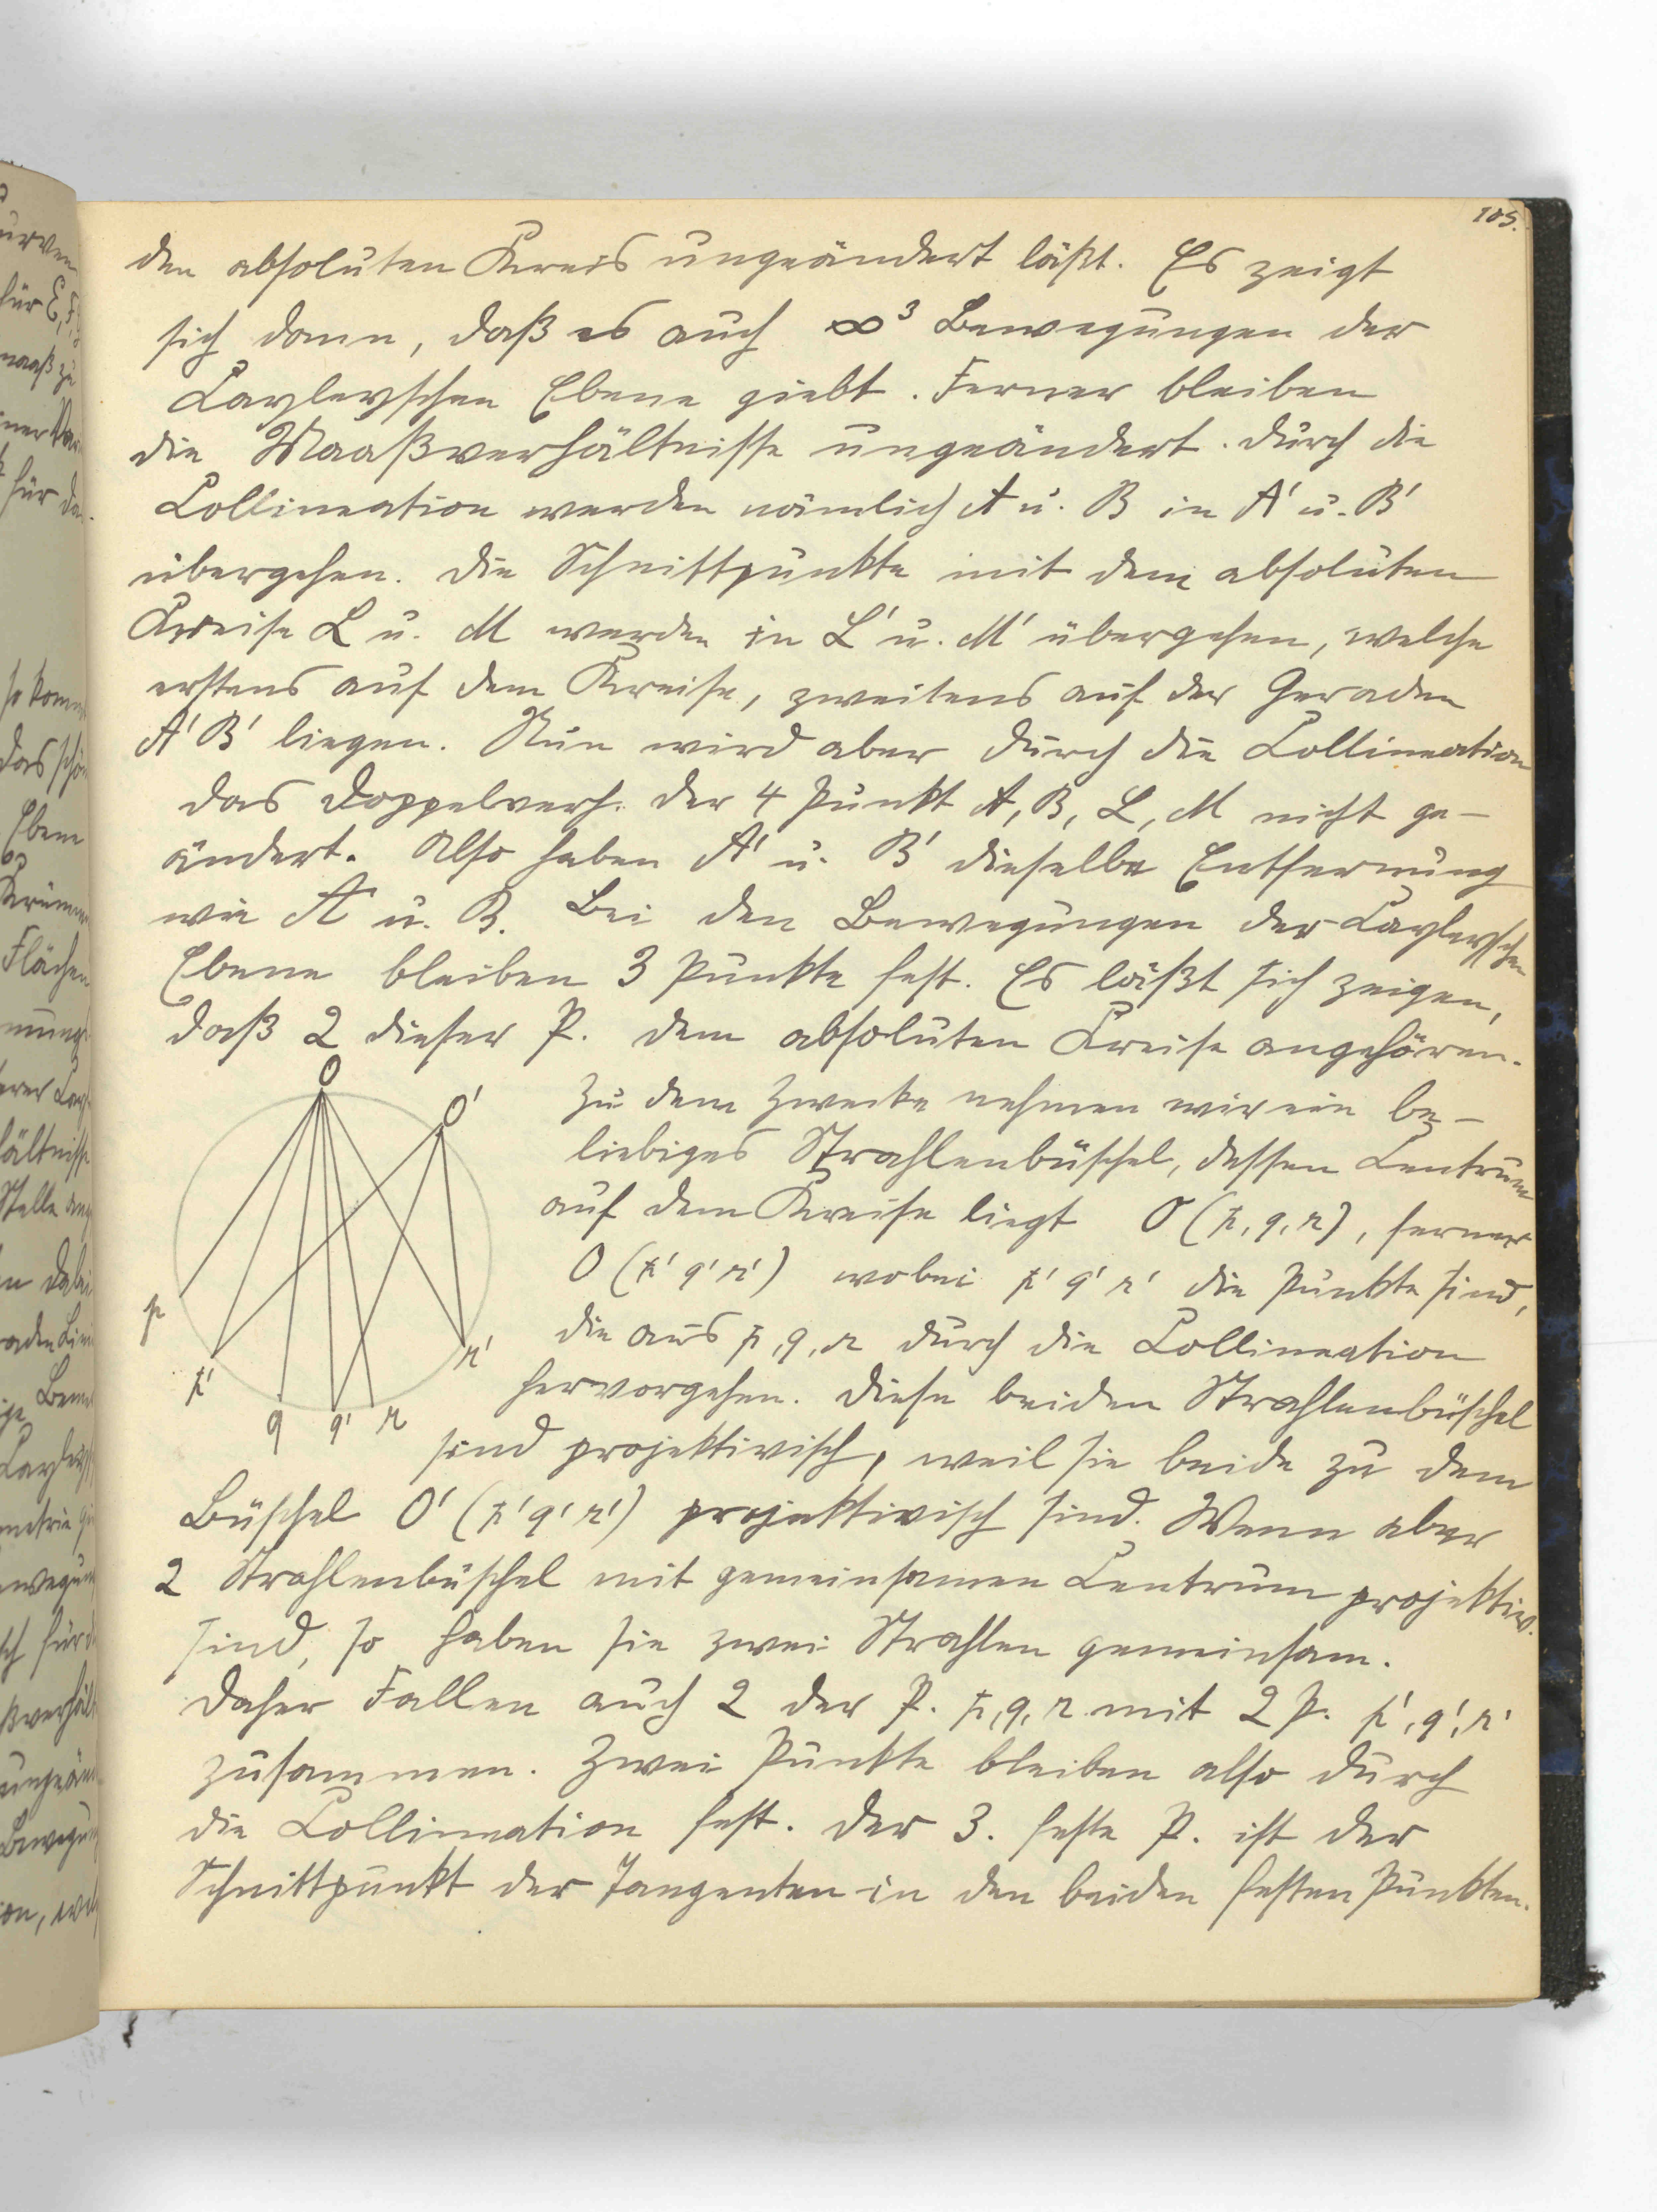 105.
den absoluten Kreis ungeändert läßt. Es zeigt
sich dann, daß es auch ∞³ Bewegungen der
Cayleyschen Ebene giebt. Ferner bleiben
die Maaßverhältnisse ungeändert. Durch die
Collineation werden nämlich A u. B in A' u. B'
übergehen. Die Schnittpunkte mit dem absoluten
Kreise L u. M werden in L' u. M' übergehen, welche
erstens auf dem Kreise, zweitens auf der Geraden
A' B' liegen. Nun wird aber durch die Collineation
das Doppelverh. der 4 Punkt A, B, L, M nicht ge-
ändert. Also haben A' u. B' dieselbe Entfernung
wie A u. B. Bei den Bewegungen der Cayleyschen
Ebene bleiben 3 Punkte fest. Es läßt sich zeigen,
daß 2 dieser P. dem absoluten Kreise angehören.
Zu dem Zwecke nehmen wir ein be-
liebiges Strahlenbüschel, dessen Centrum
auf dem Kreise liegt O (p, q, r), ferner
O (p' q' r') wobei p' q' r' die Punkte sind,
die aus p, q, r durch die Collineation
hervorgehen. Diese beiden Strahlenbüschel
sind projektivisch, weil sie beide zu dem
Büschel O' (p' q' r') projektivisch sind. Wenn aber
2 Strahlenbüschel mit gemeinsamen Centrum projektiv.
sind, so haben sie zwei Strahlen gemeinsam.
Daher Fallen auch 2 der P. p, q, r mit 2 P. p', q', r'
zusammen. Zwei Punkte bleiben also durch
die Collineation fest. Der 3. feste P. ist der
Schnittpunkt der Tangenten in den beiden festen Punkten.
O
O'
p
p'
q
q'
r
r'